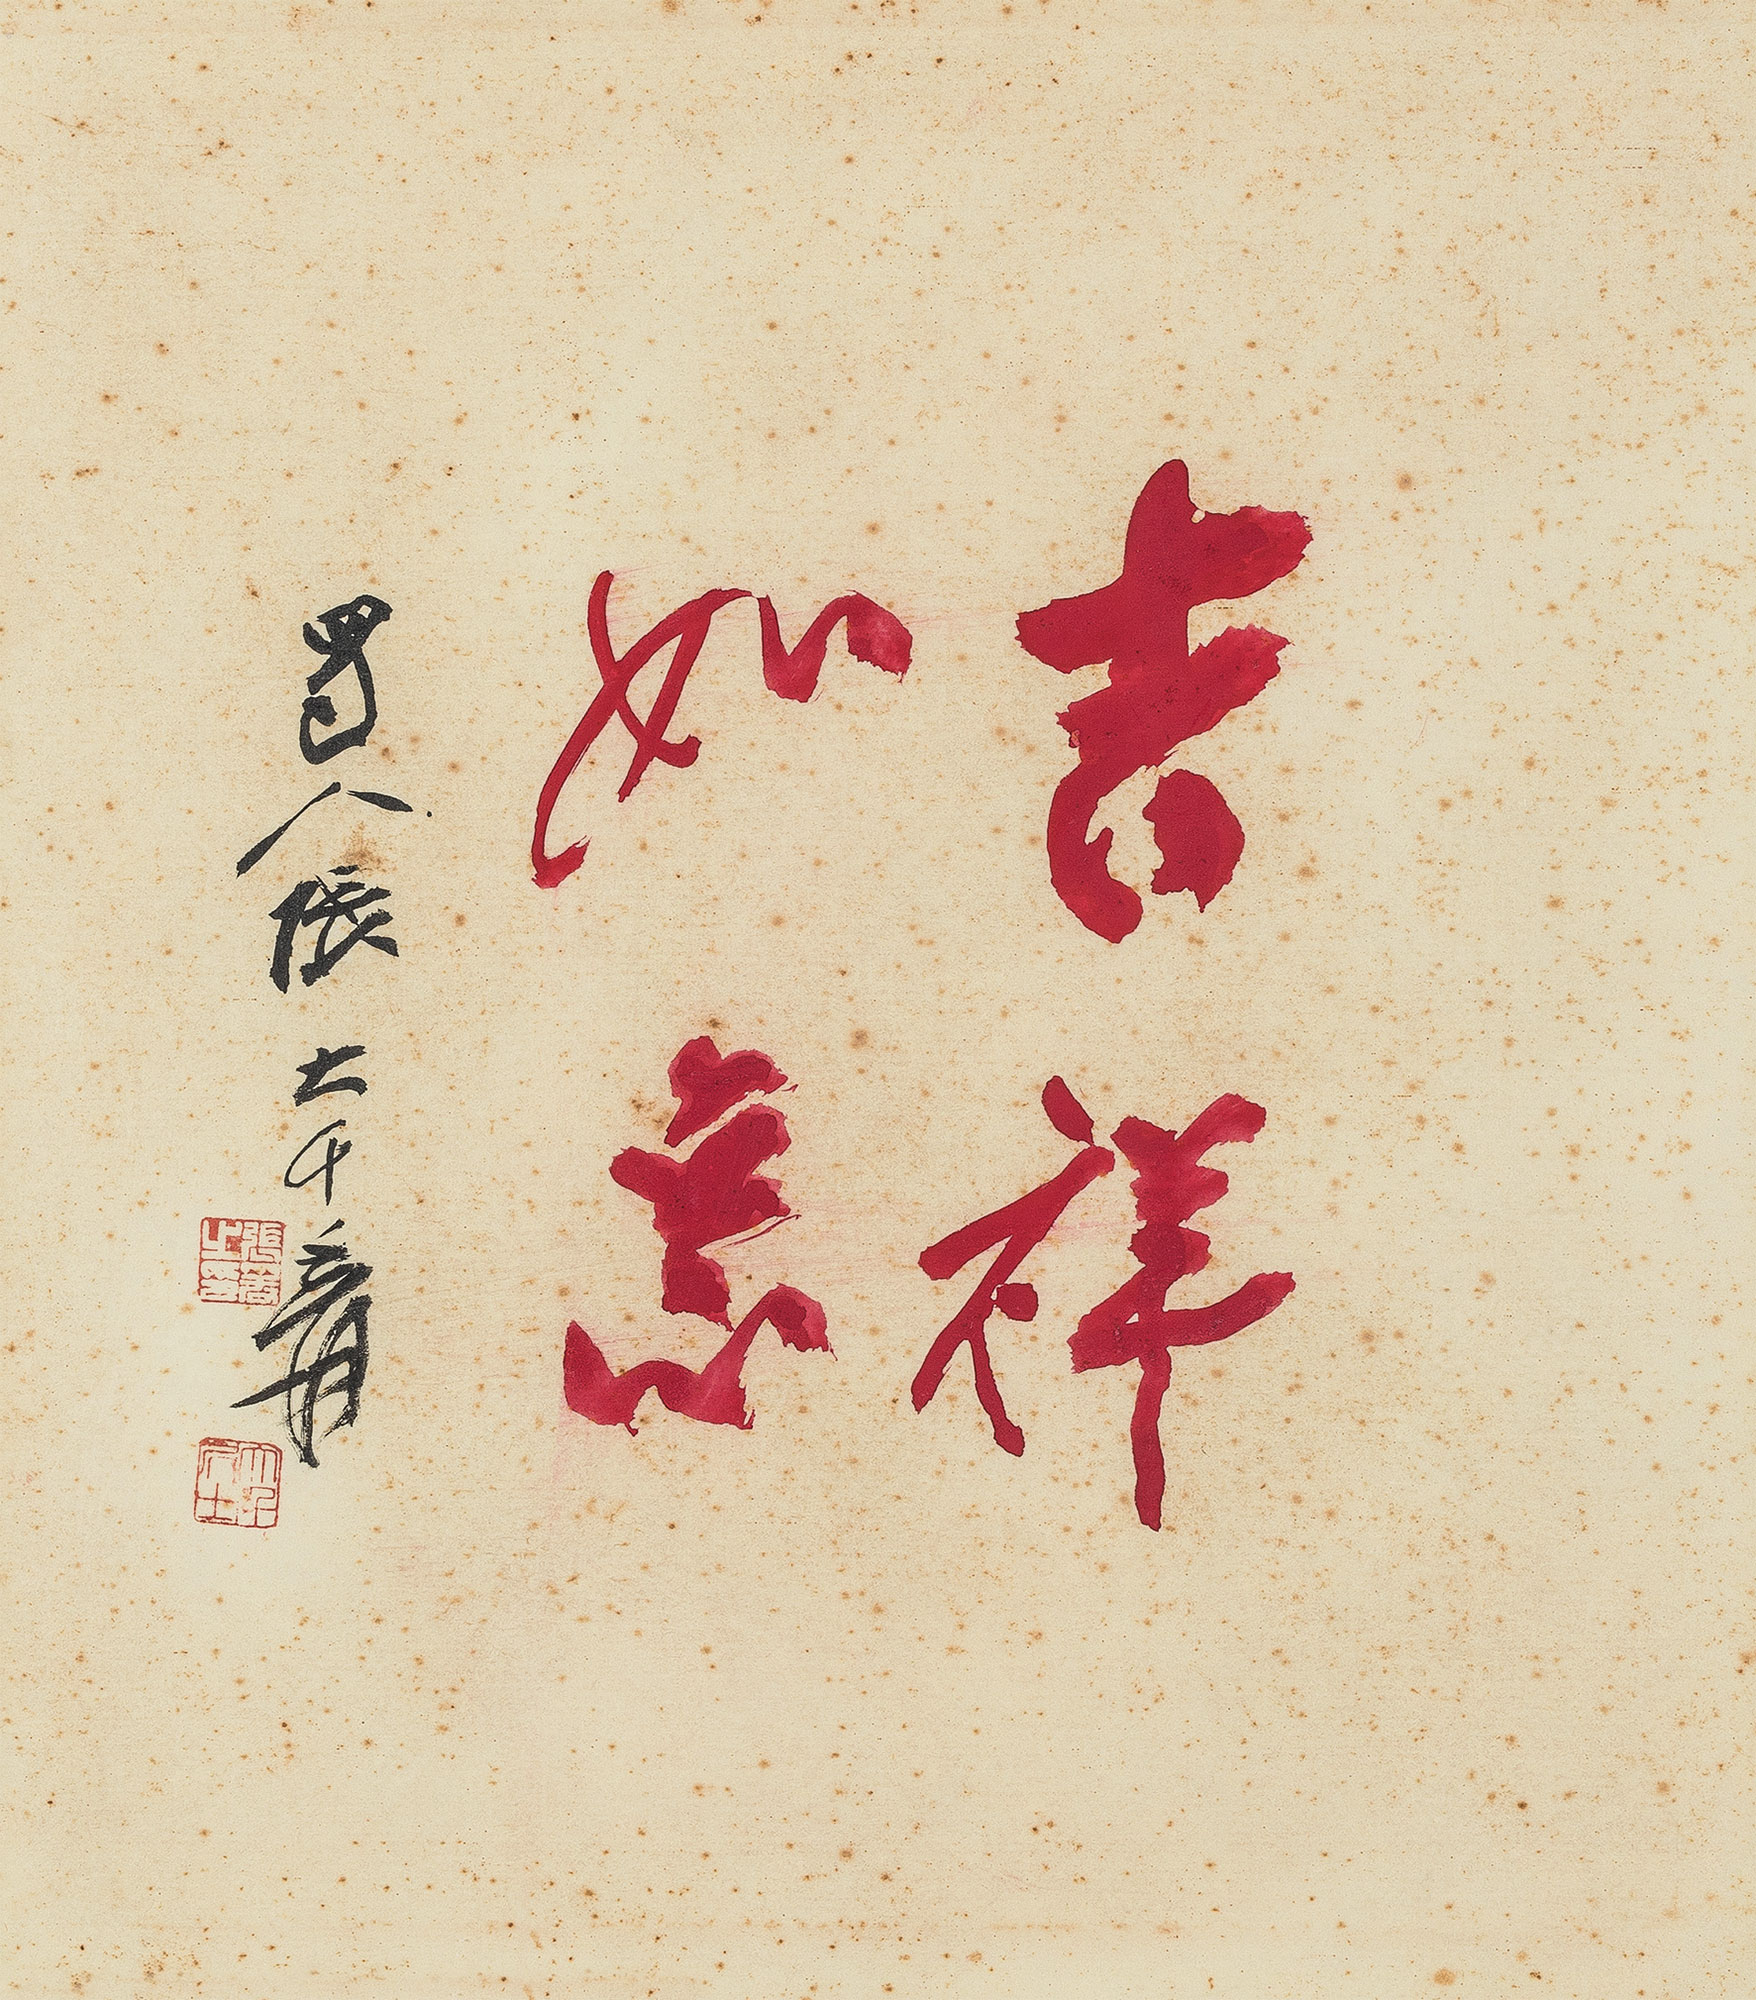 吉祥
如意
蜀人張大千爰
張爰之印
大千居士